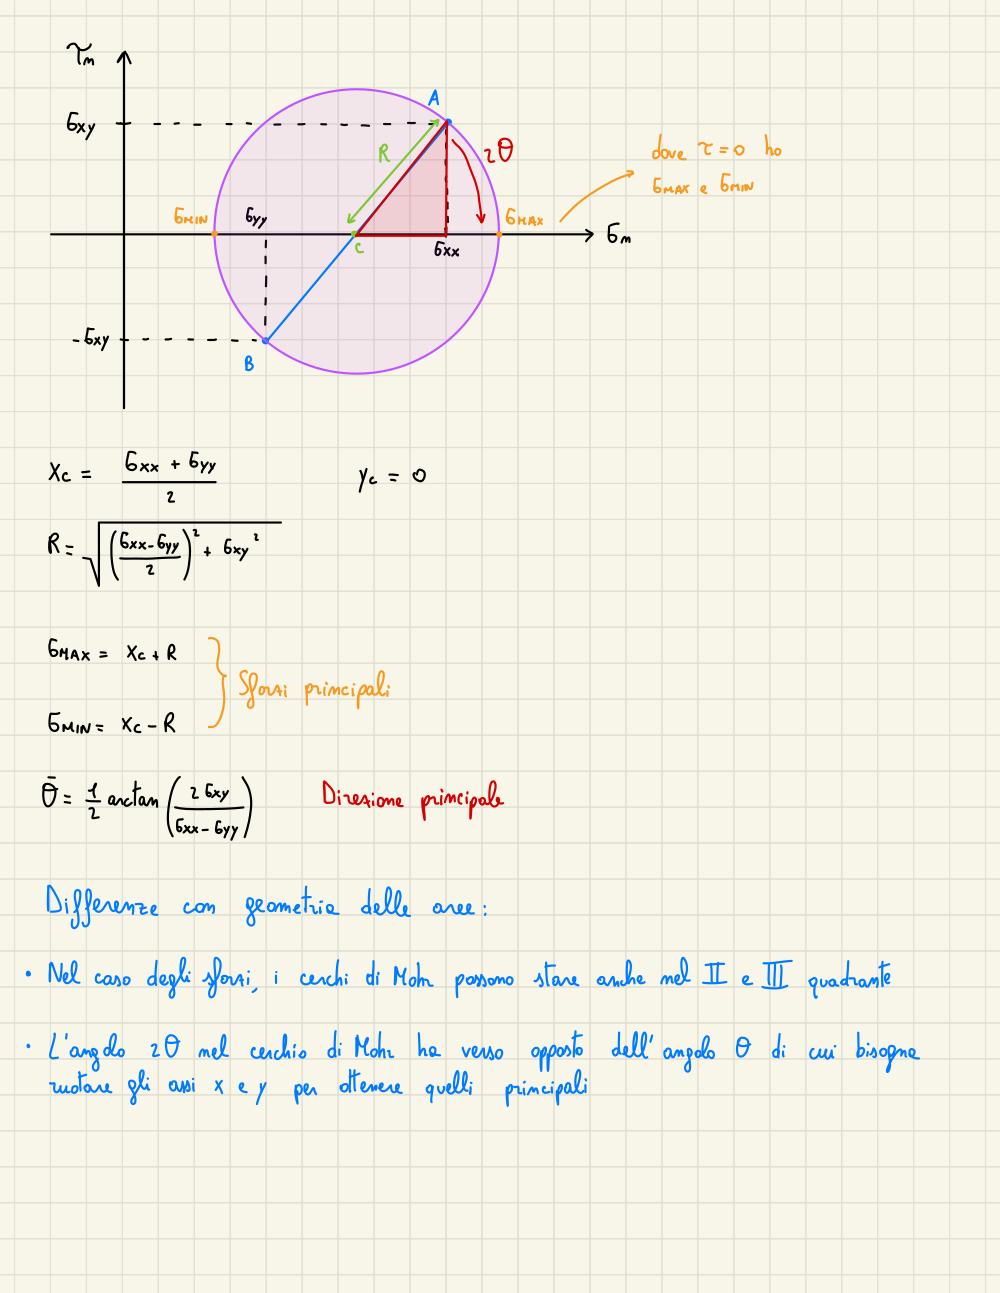 τm
σxy
A
R
2θ
dove τ = 0 ho
σMAX e σMIN
σMIN
σyy
σMAX
C
σxx
σm
-σxy
B
xc = (σxx + σyy)/2 yc = 0
R = √(((σxx - σyy)/2)² + σxy²)
σMAX = xc + R
Sforzi principali
σMIN = xc - R
θ̄ = 1/2 arctan (2σxy/(σxx - σyy)) Direzione principale
Differenze con geometria delle aree:
• Nel caso degli sforzi, i cerchi di Mohr possono stare anche nel II e III quadrante
• L'angolo 2θ nel cerchio di Mohr ha verso opposto dell'angolo θ di cui bisogna
ruotare gli assi x e y per ottenere quelli principali